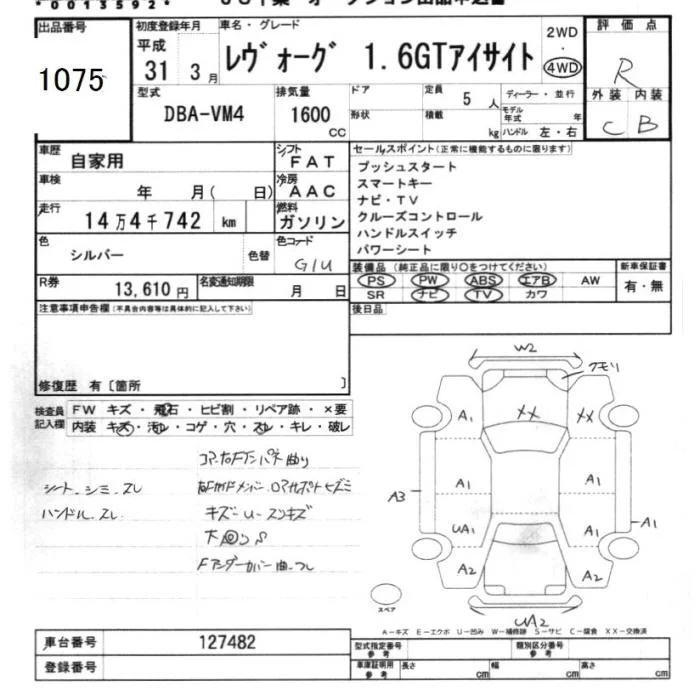 *0013592*
出品番号
1075
初度登録年月
平成
31 3月
車名・グレード
レヴォーグ 1.6GTアイサイト
2WD
・
4WD
評価点
R
外装 内装
C B
型式
DBA-VM4
排気量
1600
CC
ドア
形状
定員
5 人
積載
kg
ディーラー・並行
モデル年式 年
ハンドル 左・右
車歴
自家用
シフト
FAT
車検
年 月( 日)
冷房
AAC
走行
14万4千742 km
燃料
ガソリン
色
シルバー
色替
色コード
G1U
R券
13,610円
名変通知期限
月 日
セールスポイント(正常に機能するものに限ります)
プッシュスタート
スマートキー
ナビ・TV
クルーズコントロール
ハンドルスイッチ
パワーシート
装備品(純正品に限り〇をつけてください)
PS PW ABS エアB AW
SR ナビ TV カワ
新車保証書
有・無
注意事項申告欄(不具合内容等は具体的に記入して下さい)
後日品
修復歴 有〔箇所 〕
検査員記入欄
FW キズ・飛石・ヒビ割・リペア跡・×要
内装 キズ・汚レ・コゲ・穴・スレ・キレ・破レ
シート、シミ、スレ
ハンドル、スレ
キズ-U-スリキズ
Fアンダーカバー
W2
クモリ
A1
XX
XX
A1
A1
A3
UA1
A1
A1
A2
A2
UA2
スペア
A-キズ E-エクボ U-凹み W-補修跡 S-サビ C-腐食 XX-交換済
車台番号
127482
登録番号
型式指定番号
参考
類別区分番号
参考
車庫証明用
参考
長さ
cm
幅
cm
高さ
cm